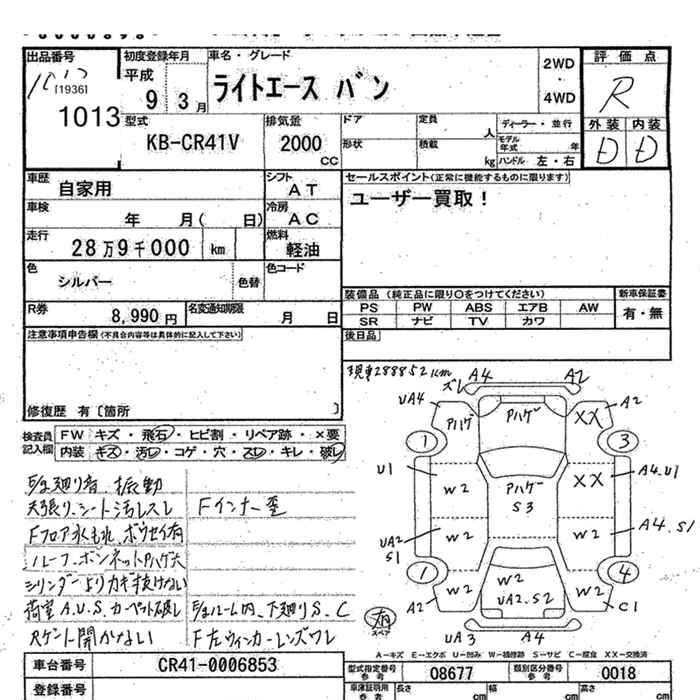 出品番号
[1936]
1013
初度登録年月
平成
9 3 月
車名・グレード
ライトエース バン
2WD
・
4WD
評価点
R
外装 内装
D D
型式
KB-CR41V
排気量
2000
CC
ドア
形状
定員
人
積載
kg
ディーラー・並行
モデル年式 年
ハンドル 左・右
車歴
自家用
シフト
AT
車検
年 月( 日)
冷房
AC
走行
28万9千000 km
燃料
軽油
色
シルバー
色替
色コード
R券
8,990 円
名変通知期限
月 日
セールスポイント(正常に機能するものに限ります)
ユーザー買取！
装備品 (純正品に限り〇をつけてください)
PS PW ABS エアB AW
SR ナビ TV カワ
新車保証書
有・無
後日品
注意事項申告欄(不具合内容等は具体的に記入して下さい)
修復歴 有〔箇所 〕
現車288852km
検査員
記入欄
FW キズ・飛石・ヒビ割・リペア跡・×要
内装 キズ・汚レ・コゲ・穴・スレ・キレ・破レ
振動
Fインナー歪
Fフロア水もれ
ルーフ、ボンネットPハゲ大
シリンダーよりカギ抜けない
荷室A.U.S.カーペット破レ
ルーム内、下廻りS、C
Rゲート開かない
F左ウインカーレンズワレ
ズレ
A4 A2
UA4
Pハゲ
Pハゲ
XX
A2
1
3
U1
W2
Pハゲ
S3
XX
A4.U1
UA2
S1
W2
W2
A4.S1
1
4
A2
W2
W2
UA2.S2
W2
C1
スペア
UA3
A4
A－キズ E－エクボ U－凹み W－補修跡 S－サビ C－腐食 XX－交換済
車台番号
CR41-0006853
登録番号
型式指定番号
参考
08677
類別区分番号
参考
0018
車庫証明用
参考
長さ cm
幅 cm
高さ cm